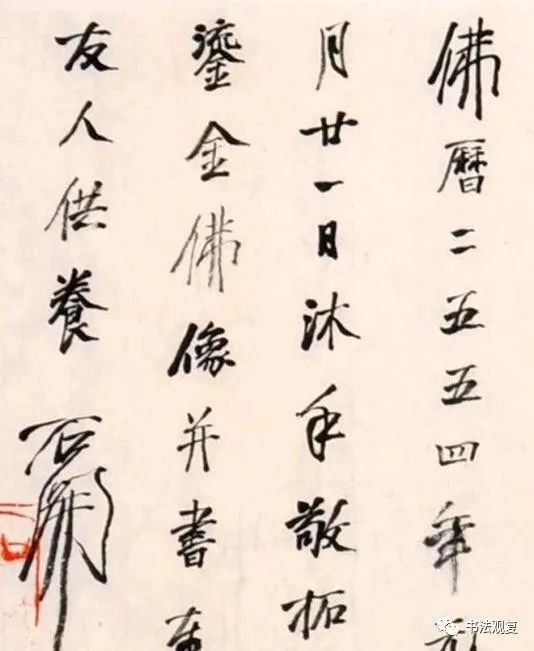 佛曆二五五四年
月廿一日沐手敬拓
鎏金佛像并書
友人供養 石開
书法观复